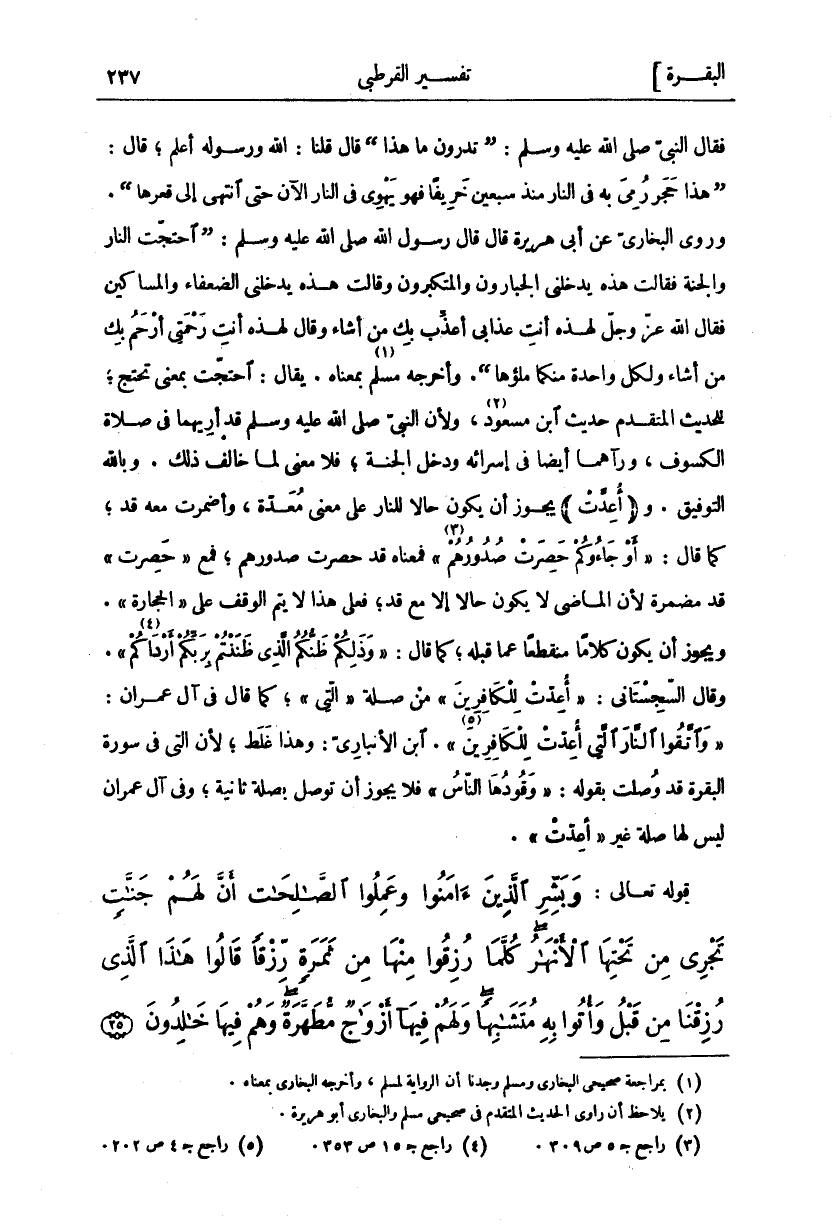 البقـــرة ] تفســير القرطبى ٢٣٧
فقال النبىّ صلى الله عليه وسلم : ” تدرون ما هذا “ قال قلنا : الله ورسوله أعلم ؛ قال :
” هذا حَجَر رُمِىَ به فى النار منذ سبعين خَرِيفًا فهو يَهْوِى فى النار الآن حتى ٱنتهى إلى قعرها “ .
وروى البخارىّ عن أبى هريرة قال قال رسول الله صلى الله عليه وسلم : ” ٱحتجّت النار
والجنة فقالت هذه يدخلنى الجبارون والمتكبرون وقالت هــذه يدخلنى الضعفاء والمساكين
فقال الله عزّ وجلّ لهــذه أنتِ عذابى أعذِّب بكِ من أشاء وقال لهــذه أنتِ رَحْمَتِى أرْحَمُ بكِ
من أشاء ولكل واحدة منكما ملؤها “. وأخرجه مسلم (١) بمعناه . يقال : ٱحتجّت بمعنى تحتج ؛
للحديث المتقــدم حديث ٱبن مسعود (٢) ، ولأن النبىّ صلى الله عليه وسلم قد أُرِيهما فى صلاة
الكسوف ، ورآهمــا أيضا فى إسرائه ودخل الجنــة ؛ فلا معنى لمــا خالف ذلك . وبالله
التوفيق . و ﴿ أُعِدَّتْ ﴾ يجــوز أن يكون حالا للنار على معنى مُعَــدّة ، وأضمرت معه قد ؛
كما قال : « أَوْ جَاءُوكُمْ حَصِرَتْ صُدُورُهُمْ (٣) » فمعناه قد حصرت صدورهم ؛ فمع « حَصِرت »
قد مضمرة لأن المــاضى لا يكون حالا إلا مع قد؛ فعلى هذا لا يتم الوقف على « الحجارة » .
ويجوز أن يكون كلامًا منقطعًا عما قبله ؛ كما قال : « وَذَلِكُمْ ظَنُّكُمُ الَّذِى ظَنَنْتُمْ بِرَبِّكُمْ أَرْدَاكُمْ (٤) » .
وقال السِّجِسْتانى : « أُعِدّتْ لِلْكَافِرِينَ » مِنْ صــلة « الَّتِى » ؛ كما قال فى آل عمــران :
« وَٱتَّقُوا ٱلنَّارَ ٱلَّتِى أُعِدّتْ لِلْكَافِرِينَ (٥) » . ابن الأنبارىّ : وهذا غَلَط ؛ لأن التى فى سورة
البقرة قد وُصلت بقوله : « وَقُودُهَا النَّاسُ » فلا يجوز أن توصل بصلة ثانية ؛ وفى آل عمران
ليس لها صلة غير « أعدّتْ » .
قوله تعــالى : وَبَشِّرِ ٱلَّذِينَ ءَامَنُوا وَعَمِلُوا ٱلصَّـٰلِحَـٰتِ أَنَّ لَهُــمْ جَنَّـٰتٍ
تَجْرِى مِن تَحْتِهَا ٱلْأَنْهَـٰرُ كُلَّمَا رُزِقُوا مِنْهَا مِن ثَمَرَةٍ رِّزْقًا قَالُوا هَـٰذَا ٱلَّذِى
رُزِقْنَا مِن قَبْلُ وَأُتُوا بِهِ مُتَشَـٰبِهًا وَلَهُمْ فِيهَآ أَزْوَٰجٌ مُّطَهَّرَةٌ وَهُمْ فِيهَا خَـٰلِدُونَ ﴿٢٥﴾
(١) بمراجعة صحيحى البخارى ومسلم وجدنا أن الرواية لمسلم ، وأخرجه البخارى بمعناه .
(٢) يلاحظ أن راوى الحديث المتقدم فى صحيحى مسلم والبخارى أبو هريرة .
(٣) راجع جـ ٥ ص ٣٠٩ . (٤) راجع جـ ١٥ ص ٣٥٣ . (٥) راجع جـ ٤ ص ٢٠٢ .